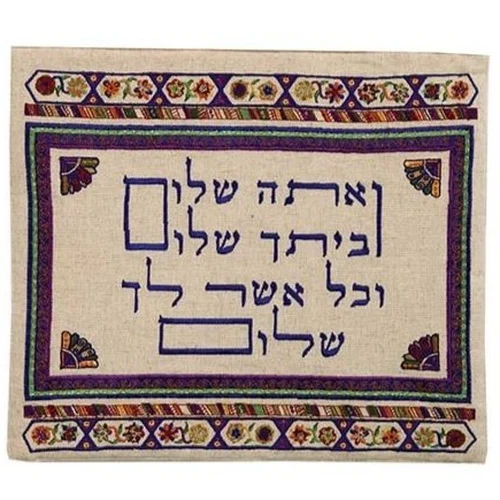 ואתה שלום
וביתך שלום
וכל אשר לך
שלום